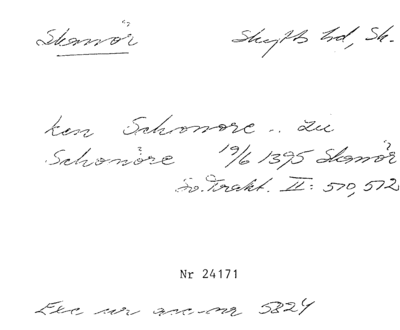 Skanör Skytts hd, Sk.
ken Schonore .. zu
Schonöre 19/6 1395 Skanör
Sv. Trakt. II: 570, 572
Nr 24171
Exc ur acc-nr 5824